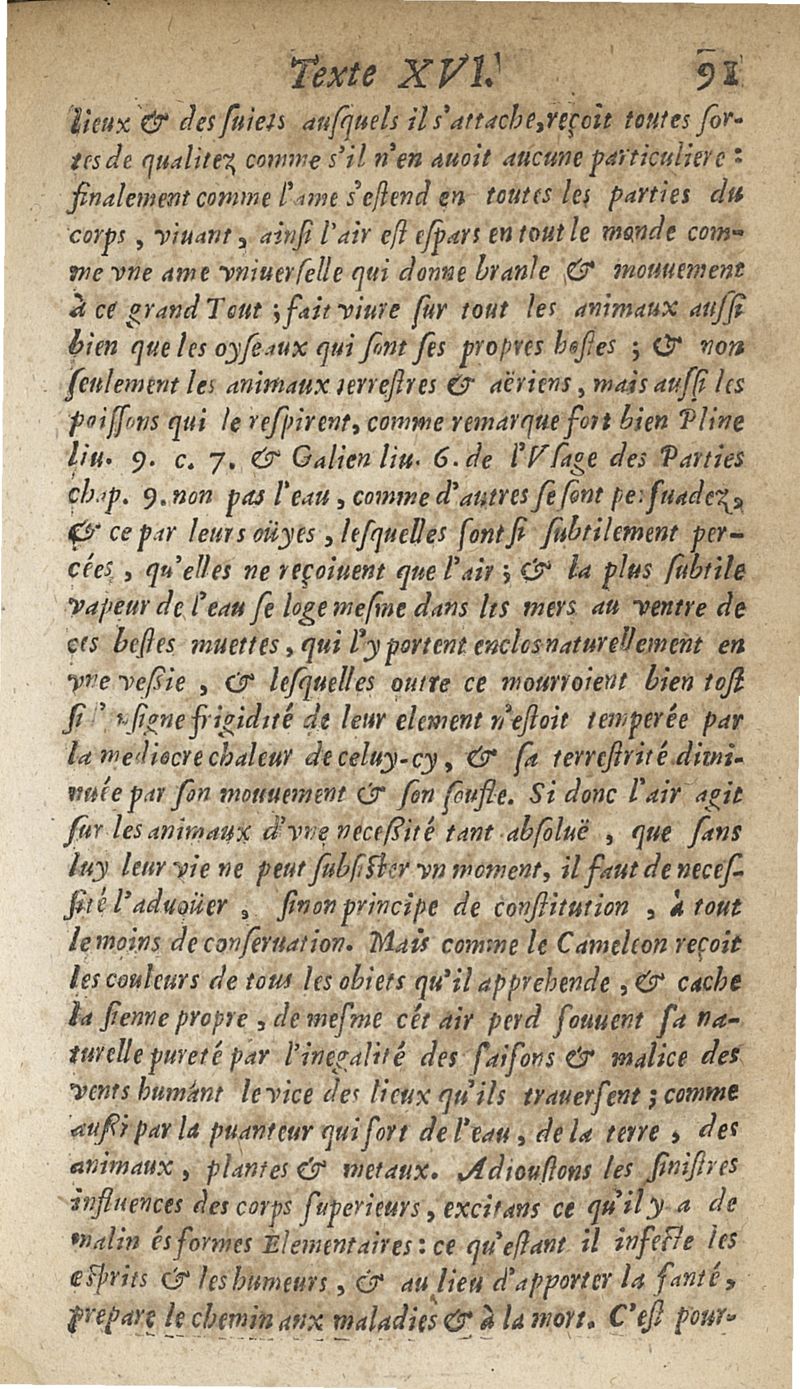 Texte XVI. 91
lieux & des suiets ausquels il s'attache, reçoit toutes sor-
tes de qualitez comme s'il n'en auoit aucune particuliere :
finalement comme l'ame s'estend en toutes les parties du
corps , viuant , ainsi l'air est espars en tout le monde com-
me vne ame vniuerselle qui donne branle & mouuement
à ce grand Tout ; fait viure sur tout les animaux aussi
bien que les oyseaux qui sont ses propres hostes ; & non
seulement les animaux terrestres & aëriens , mais aussi les
poissons qui le respirent, comme remarque fort bien Pline
liu. 9. c. 7. & Galien liu. 6. de l'Vsage des Parties
chap. 9. non pas l'eau , comme d'autres se sont persuadez,
& ce par leurs oüyes , lesquelles sont si subtilement per-
cées , qu'elles ne reçoiuent que l'air ; & la plus subtile
vapeur de l'eau se loge mesme dans les mers au ventre de
ces bestes muettes , qui l'y portent enclos naturellement en
vne vessie , & lesquelles outre ce mourroient bien tost
si l'insigne frigidité de leur element n'estoit temperée par
la mediocre chaleur de celuy-cy , & sa terrestrité dimi-
nuée par son mouuement & son soufle. Si donc l'air agit
sur les animaux d'vne necessité tant absoluë , que sans
luy leur vie ne peut subsister vn moment, il faut de neces-
sité l'aduoüer , sinon principe de constitution , à tout
le moins de conseruation. Mais comme le Cameleon reçoit
les couleurs de tous les obiets qu'il apprehende , & cache
la sienne propre , de mesme cét air perd souuent sa na-
turelle pureté par l'inegalité des saisons & malice des
vents humánt le vice des lieux qu'ils trauersent ; comme
aussi par la puanteur qui sort de l'eau , de la terre , des
animaux , plantes & metaux. Adioustons les sinistres
influences des corps superieurs , excitans ce qu'il y a de
malin és formes Elementaires : ce qu'estant il infecte les
esprits & les humeurs , & au lieu d'apporter la santé ,
prepare le chemin aux maladies & à la mort. C'est pour-